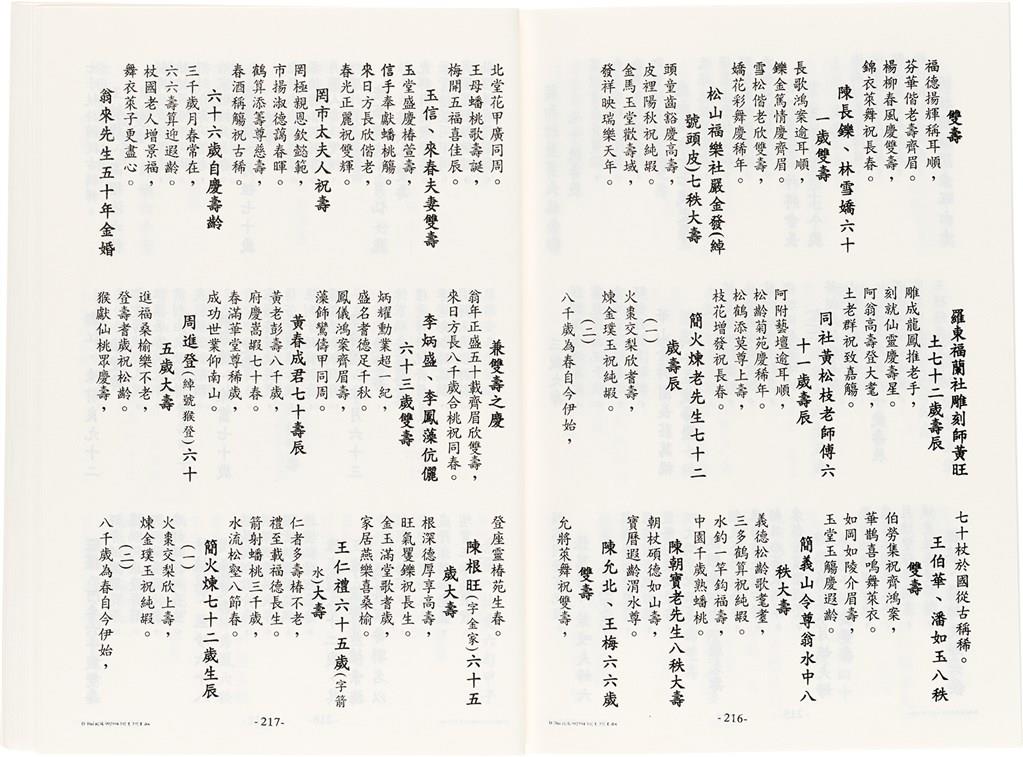 雙壽
福德揚輝稱耳順，
芬華偕老壽齊眉。
楊柳春風慶雙壽，
錦衣萊舞祝長春。
陳長鑠、林雪嬌六十
一歲雙壽
長歌鴻案逾耳順，
鑠金篤情慶齊眉。
雪松偕老欣雙壽，
嬌花彩舞慶稀年。
松山福樂社嚴金發(綽
號頭皮)七秩大壽
頭童齒豁慶高壽，
皮裡陽秋祝純嘏。
金馬玉堂歡壽域，
發祥映瑞樂天年。
羅東福蘭社雕刻師黃旺
土七十二歲壽辰
雕成龍鳳推老手，
刻就仙靈慶壽星。
阿翁高壽登大耄，
土老群祝致嘉觴。
同社黃松枝老師傅六
十一歲壽辰
阿附藝壇逾耳順，
松齡菊苑慶稀年。
松鶴添算尊上壽，
枝花增發祝長春。
簡火煉老先生七十二
歲壽辰
(一)
火棗交梨欣耆壽，
煉金璞玉祝純嘏。
(二)
八千歲為春自今伊始，
七十杖於國從古稱稀。
王伯華、潘如玉八秩
雙壽
伯勞集祝齊鴻案，
華鵲喜鳴舞萊衣。
如岡如陵介眉壽，
玉堂玉觴慶遐齡。
簡義山令尊翁水中八
秩大壽
義德松齡歌耄耋，
三多鶴算祝純嘏。
水釣一竿鈎福壽，
中園千歲熟蟠桃。
陳朝寶老先生八秩大壽
朝杖碩德如山壽，
寶曆遐齡渭水尊。
陳允北、王梅六六歲
雙壽
允將萊舞祝雙壽，
-216-
北堂花甲廣同周。
王母蟠桃歌壽誕，
梅開五福喜佳辰。
玉信、來春夫妻雙壽
玉堂盛慶椿萱壽，
信手奉獻蟠桃觴。
來日方長欣偕老，
春光正麗祝雙輝。
罔市太夫人祝壽
罔極親恩欽懿範，
市揚淑德藹春暉。
鶴算添籌尊慈壽，
春酒稱觴祝古稀。
六十六歲自慶壽齡
三千歲月春常在，
六六壽算迎遐齡。
杖國老人增景福，
舞衣萊子更盡心。
翁來先生五十年金婚
兼雙壽之慶
翁年正盛五十載齊眉欣雙壽，
來日方長八千歲合桃祝同春。
李炳盛、李鳳藻伉儷
六十三歲雙壽
炳耀勳業超一紀，
盛名耆德足千秋。
鳳儀鴻案齊眉壽，
藻飾鴛儔甲同周。
黃春成君七十壽辰
黃老彭壽八千歲，
府慶嵩嘏七十春。
春滿華堂尊稀歲，
成功世業仰南山。
周進登(綽號猴登)六十
五歲大壽
進福桑榆樂不老，
登壽耆歲祝松齡。
猴獻仙桃眾慶壽，
登座靈椿苑生春。
陳根旺(字金家)六十五
歲大壽
根深德厚享高壽，
旺氣矍鑠祝長生。
金玉滿堂歌耆歲，
家居燕樂喜桑榆。
王仁禮六十五歲(字箭
水)大壽
仁者多壽椿不老，
禮至載福德長生。
箭射蟠桃三千歲，
水流松壑八節春。
簡火煉七十二歲生辰
(一)
火棗交梨欣上壽，
煉金璞玉祝純嘏。
(二)
八千歲為春自今伊始，
-217-